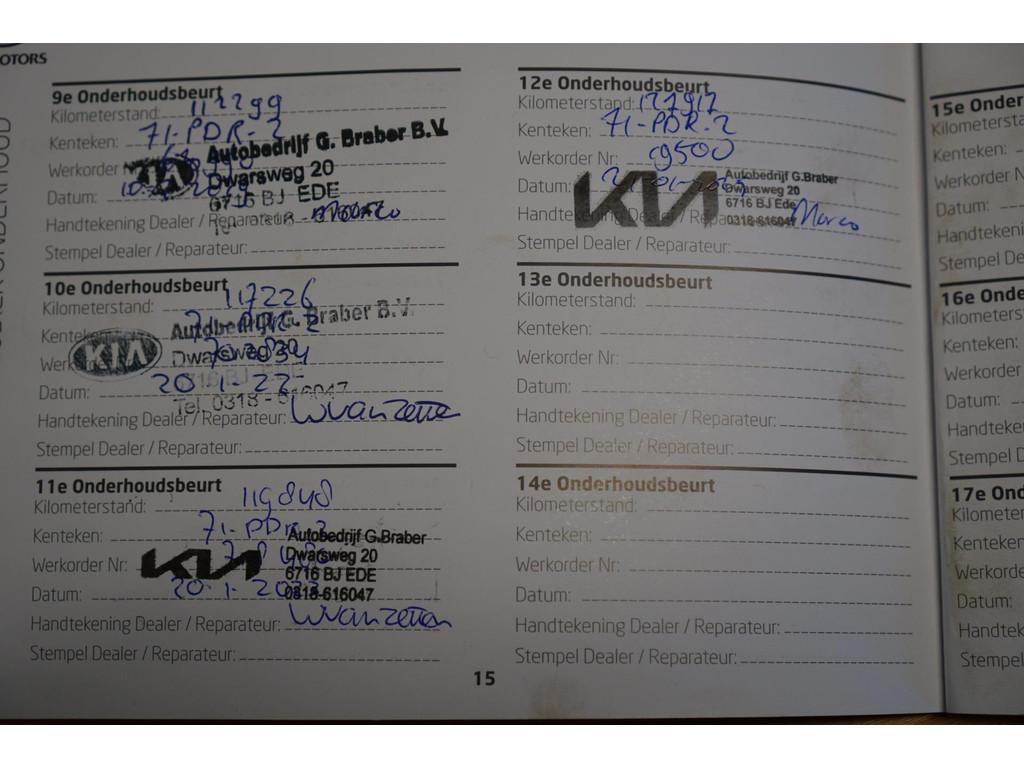 OTORS
9e Onderhoudsbeurt
Kilometerstand: 112299
Kenteken: 71-PDR-2
Werkorder
KIA
Autobedrijf G. Braber B.V.
Dwarsweg 20
6716 BJ EDE
Datum:
Handtekening Dealer / Reparateur:
Stempel Dealer / Reparateur:
10e Onderhoudsbeurt
Kilometerstand: 117226
Kenteken: 71-PDR-2
Autobedrijf G. Braber B.V.
KIA
Dwarsweg 20
6716 BJ EDE
Datum: 20-1-22
Tel. 0318 - 616047
Handtekening Dealer / Reparateur:
Stempel Dealer / Reparateur:
11e Onderhoudsbeurt
Kilometerstand: 119848
Kenteken: 71-PDR-2
Autobedrijf G.Braber
Werkorder Nr:
KIA
Dwarsweg 20
6716 BJ EDE
Datum: 20-1-2023
0318-616047
Handtekening Dealer / Reparateur:
Stempel Dealer / Reparateur:
12e Onderhoudsbeurt
Kilometerstand: 127917
Kenteken: 71-PDR-2
Werkorder Nr: 89500
Datum:
KIA
Autobedrijf G.Braber
Dwarsweg 20
6716 BJ Ede
0318-616047
Handtekening Dealer / Reparateur: Marco
Stempel Dealer / Reparateur:
13e Onderhoudsbeurt
Kilometerstand:
Kenteken:
Werkorder Nr:
Datum:
Handtekening Dealer / Reparateur:
Stempel Dealer / Reparateur:
14e Onderhoudsbeurt
Kilometerstand:
Kenteken:
Werkorder Nr:
Datum:
Handtekening Dealer / Reparateur:
Stempel Dealer / Reparateur:
15
15e Onder
Kilometersta
Kenteken:
Werkorder N
Datum:
Handtekeni
Stempel De
16e Onde
Kilometers
Kenteken:
Werkorder
Datum:
Handteke
Stempel D
17e Ond
Kilometer
Kenteken
Werkorde
Datum:
Handtek
Stempel